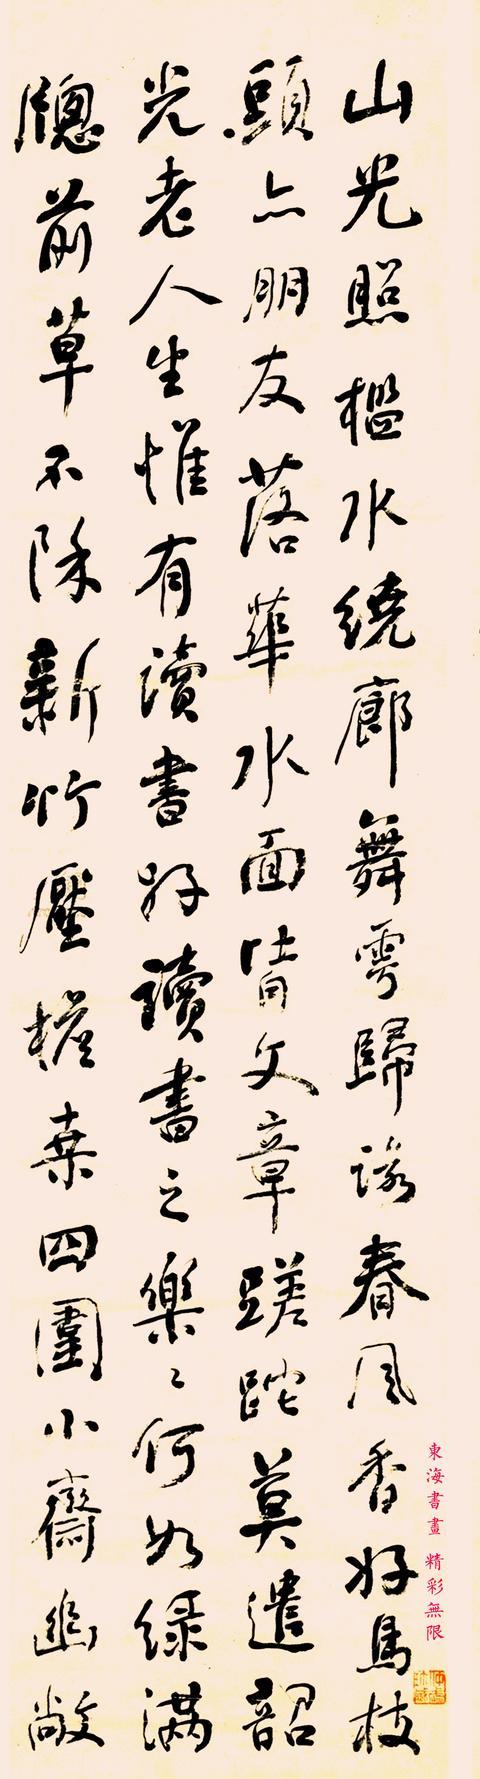 山光照檻水繞廊舞雩歸詠春風香好鳥枝
頭亦朋友落華水面皆文章蹉跎莫遣韶
光老人生惟有讀書好讀書之樂〻何如綠滿
牕前草不除新竹壓檐桑四圍小齋幽敞
東海書畫 精彩無限